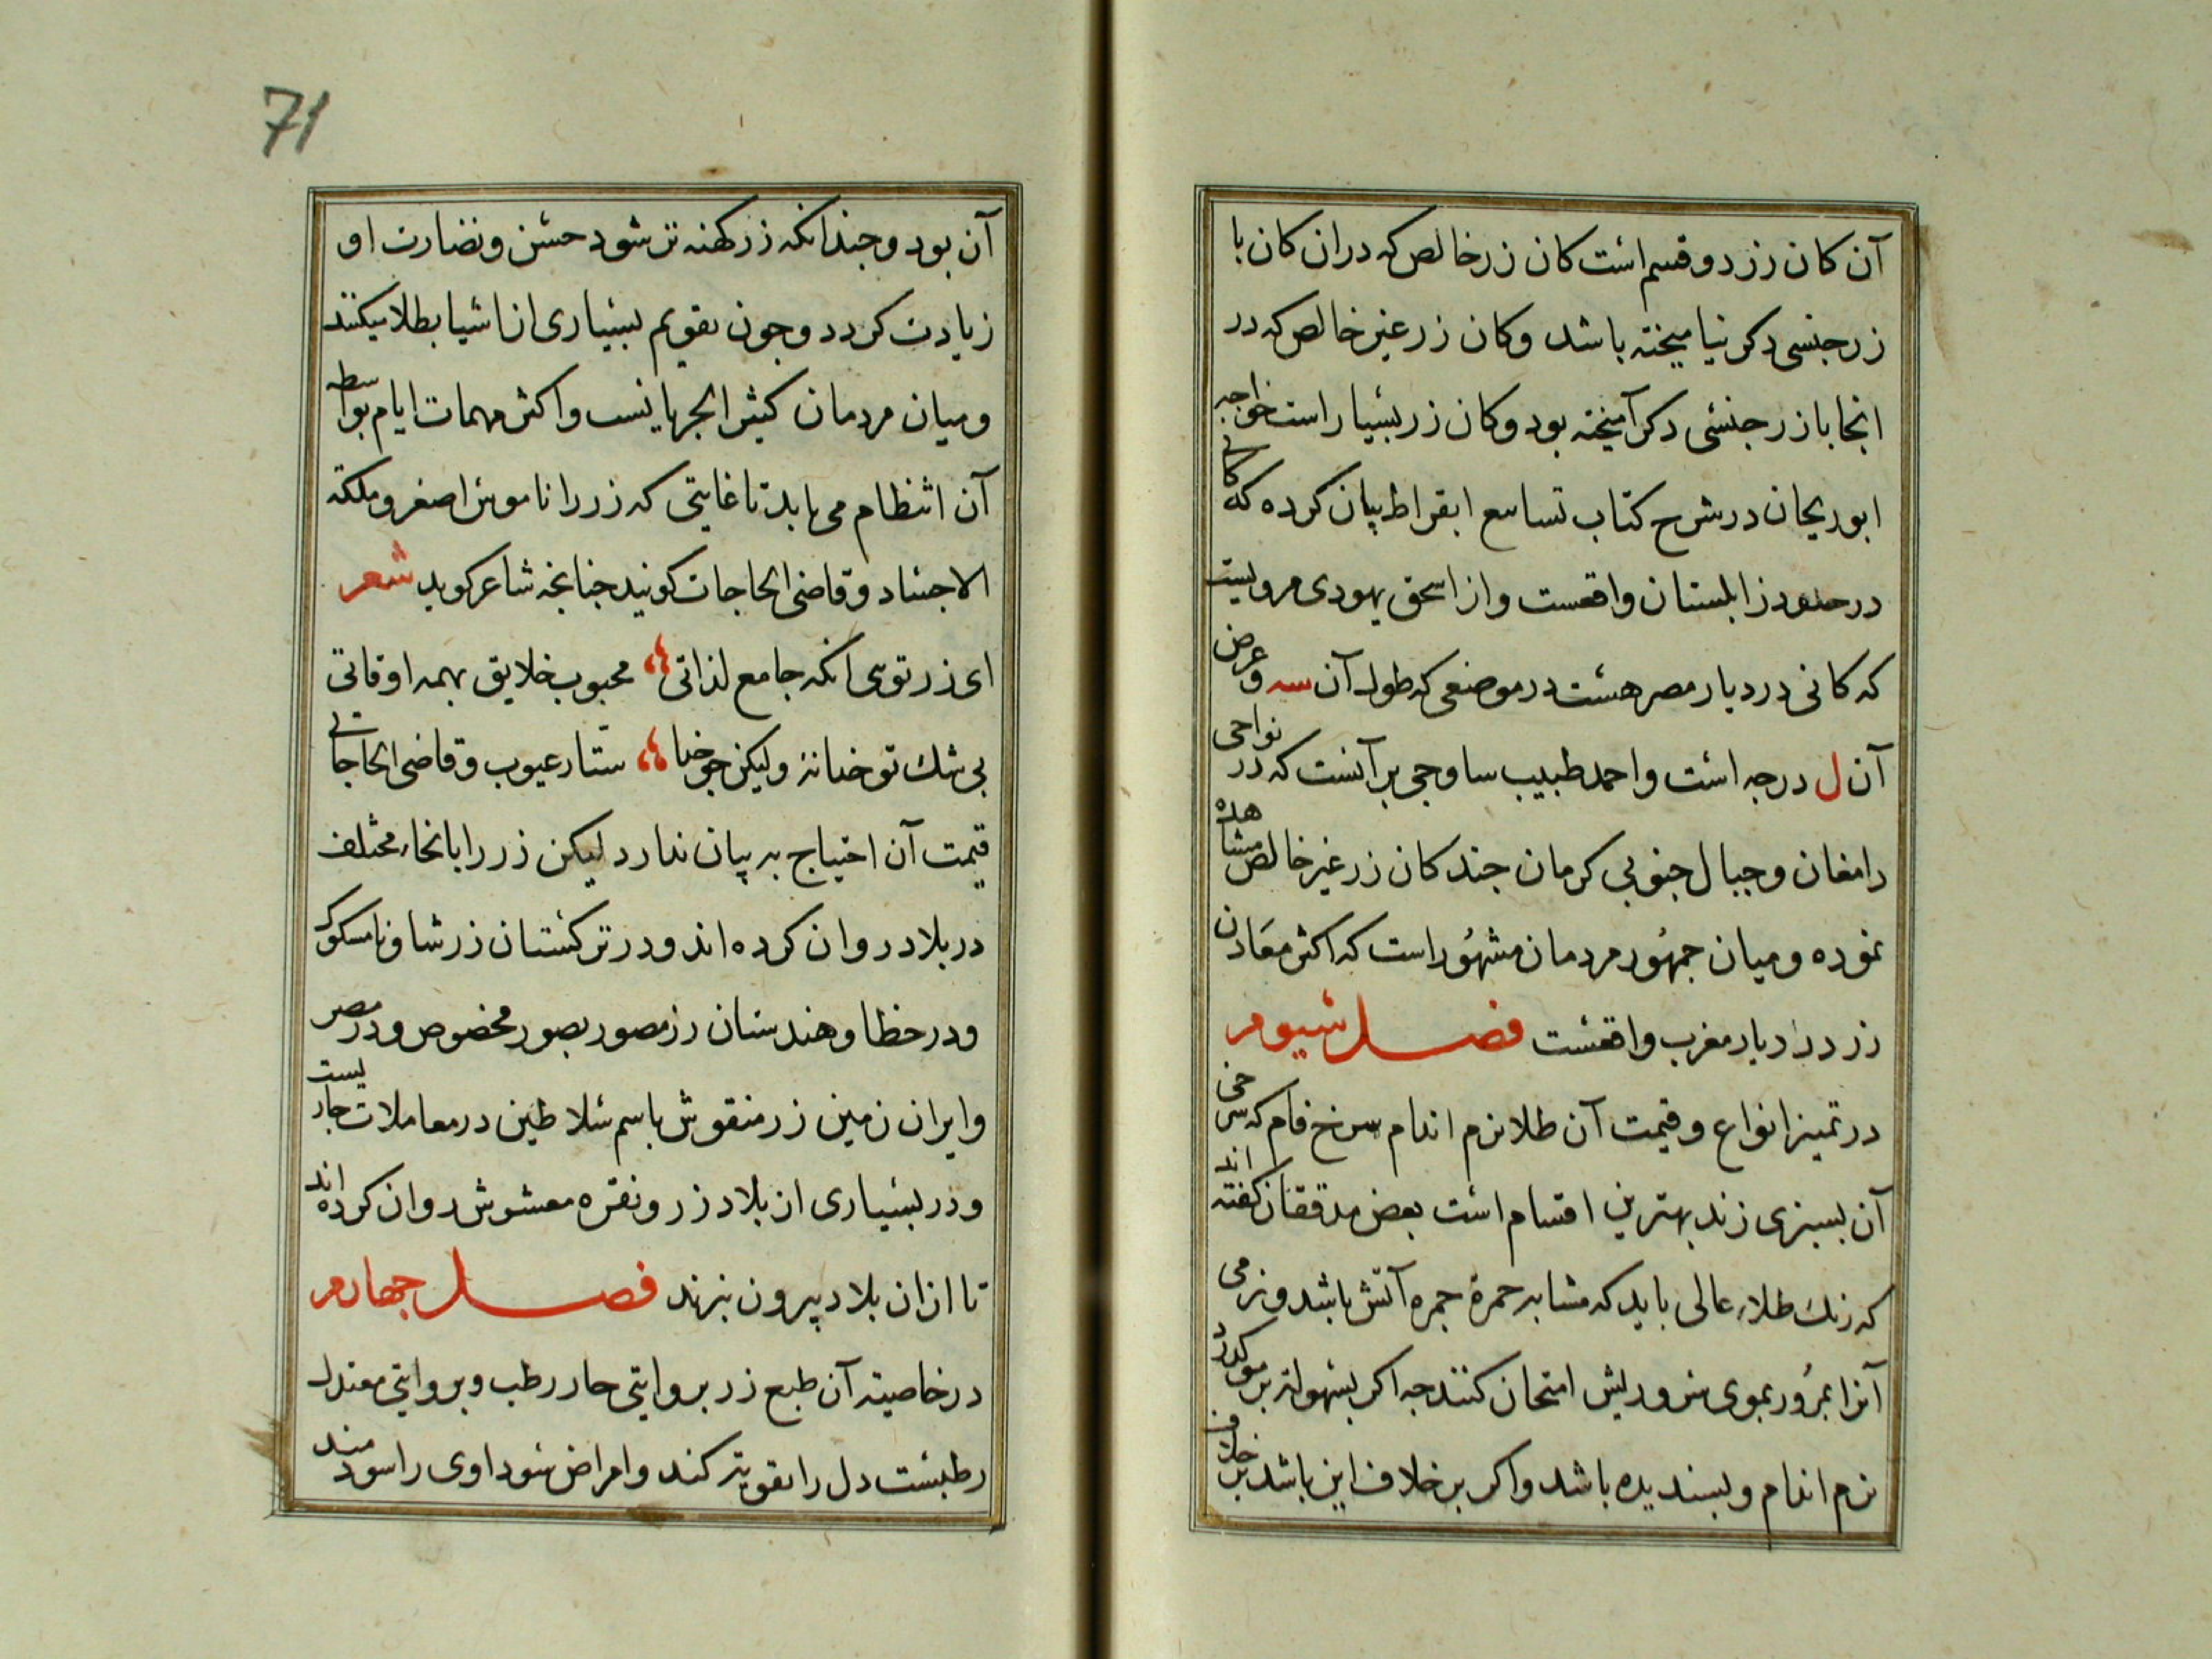 آن کان زر دو قسم است کان زر خالص که دران کان با
زر جنسی دکر نیامیخته باشد وکان زر غیر خالص که در
انجا با زر جنسی دکر آمیخته بود وکان زر بسیار است خواجه
ابو ریحان در شرح کتاب تساسع ابقراط بیان کرده که کانی
در حدود زابلستان واقعست و از اسحق یهودی مرویست
که کانی در دیار مصر هست در موضعی که طول آن سه وعرض
آن ل درجه است واحمد طبیب ساوجی بر آنست که در نواحی
دامغان و جبال جنوبی کرمان جند کان زر غیر خالص مشاهده
نموده و میان جمهور مردمان مشهور است که اکثر معادن
زر در دیار مغرب واقعست فصل سیوم
در تمیز انواع و قیمت آن طلا نرم اندام سرخ فام که سرخی
آن بسبزی زند بهترین اقسام است بعض مدققان کفته اند
که رنک طلاء عالی باید که مشابه حمرة جمره آتش باشد و نرمی
آنرا بمرور بموی سر و ریش امتحان کنند جه اکر بسهولة بر مو کردد
نرم اندام و بسندیده باشد واکر بر خلاف این باشد بر خلاف
71
آن بود و جندانکه زر کهنه تر شود حسن و نضارت او
زیادت کردد و جون تقویم بسیاری از اشیا بطلا میکنند
و میان مردمان کثیر الجریانست و اکثر مهمات ایام بواسطه
آن انتظام می یابد تا غایتی که زر را ناموس اصغر و ملکة
الاجساد و قاضی الحاجات کویند جنانجه شاعر کوید شعر
ای زر توی انکه جامع لذاتی محبوب خلایق بهمه اوقاتی
بی شک تو خدا نۀ ولیکن جو خدا ستار عیوب و قاضی الحاجاتی
قیمت آن احتیاج به بیان ندارد لیکن زر را بانحاء مختلف
در بلاد روان کرده اند و در ترکستان زر شاو نامسکوک
و در خطا و هندستان زر مصور بصور مخصوص و در مصر
و ایران زمین زر منقوش باسم سلاطین در معاملات جاریست
و در بسیاری از بلاد زر و نقره مغشوش روان کرده اند
تا از ان بلاد بیرون نبرند فصل جهارم
در خاصیته آن طبع زر بروایتی حار رطب و بروایتی معتدل
رطبست دل را تقویة کند و امراض سوداوی را سودمند